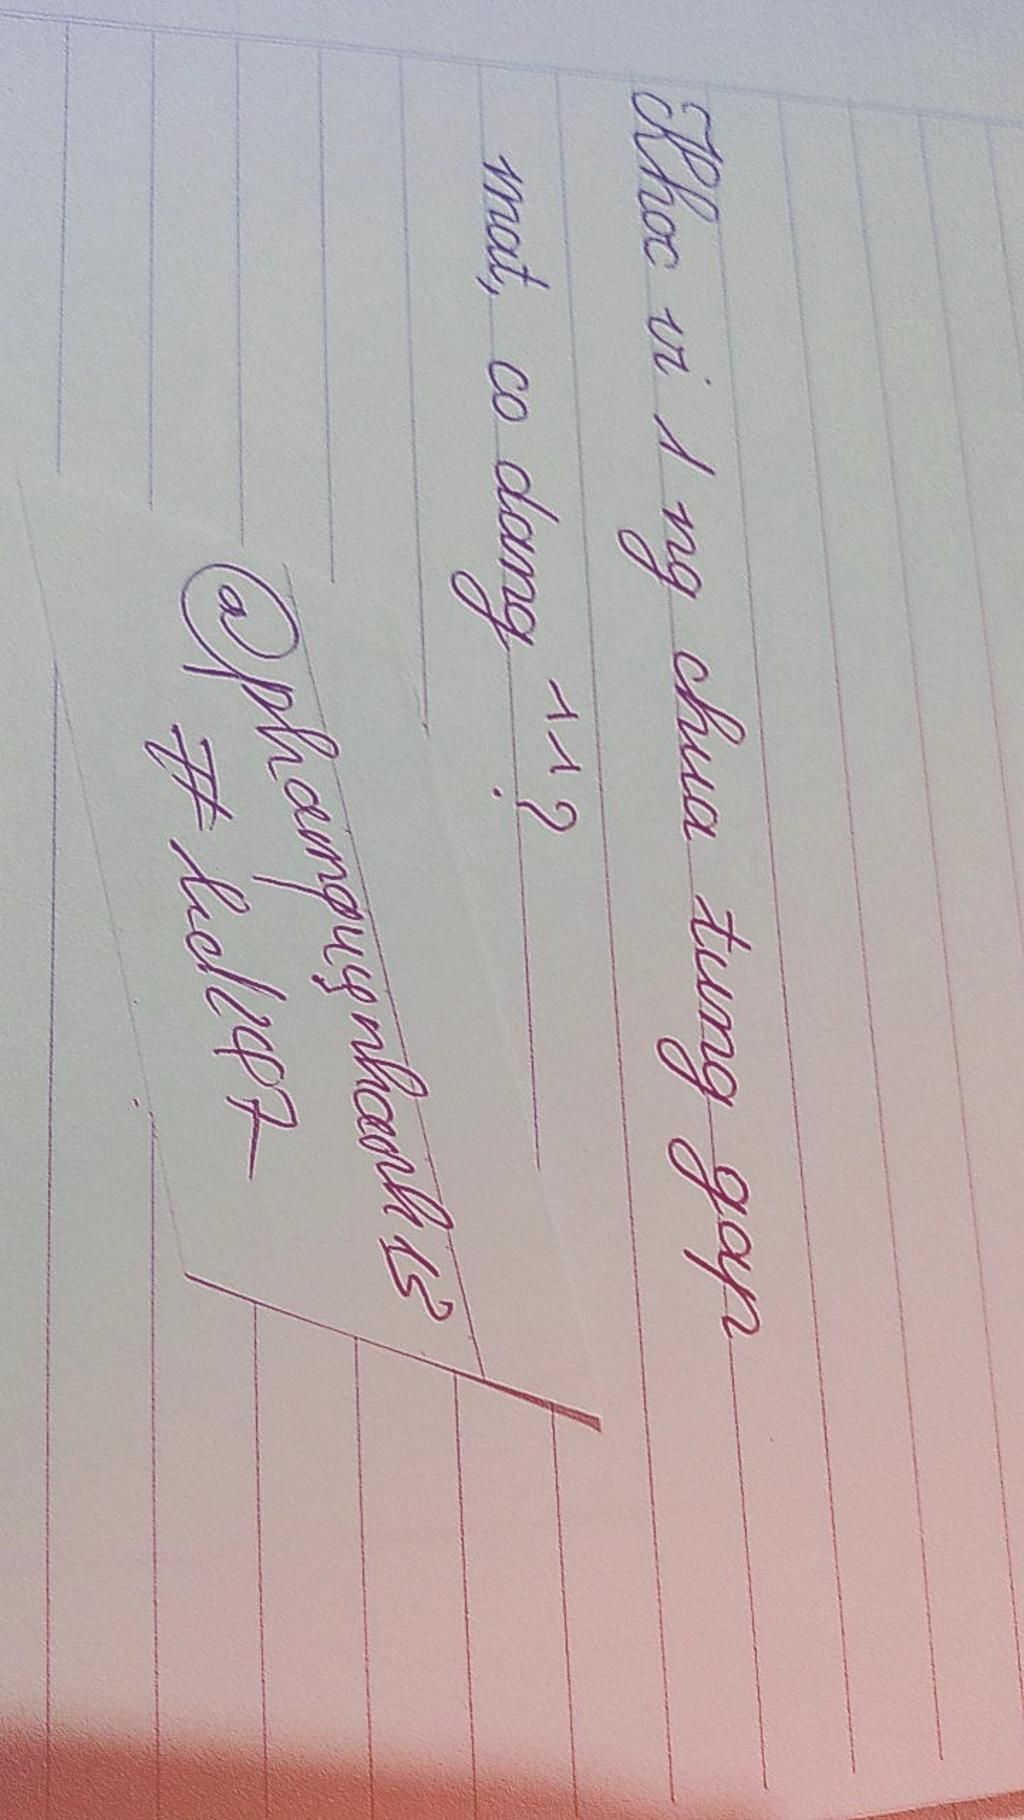 Khoc vi 1 ng chua tung gap
mat, co dang ^^?
@phamquynhanh13